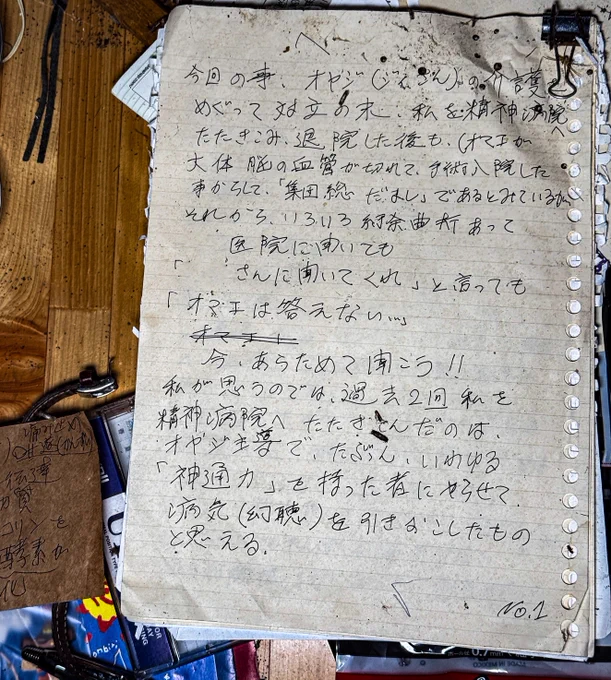 今回の事、オヤジ(じいさん)の介護を
めぐって対立の末、私を精神病院へ
たたきこみ、退院した後も、(オマエが
大体 脳の血管が切れて、手術入院した
事からして、「集団総だまし」であるとみているが
それから、いろいろ紆余曲折あって
医院に聞いても
「 さんに聞いてくれ」と言っても
「オマエは答えない…」
今、あらためて聞こう!!
私が思うのでは、過去2回 私を
精神病院へ たたきこんだのは、
オヤジ主導で、たぶん、いわゆる
「神通力」を持った者にやらせて
病気(幻聴)を引きおこしたもの
と思える。
No.1
伝達
を
酵素が
化